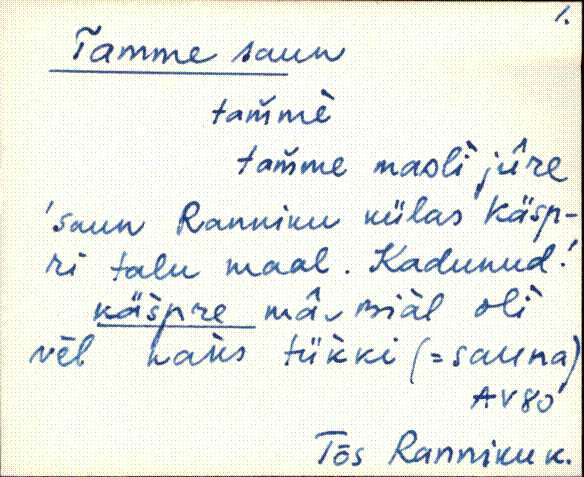 1.
Tamme saun
tam̆mè
tam̆me maoli jûre
'saun Ranniku külas Käsp-
ri talu maal. Kadunud.'
käšpre mâ, piäl oli
vēl kaks tükki (= sauna)
AV80
Tõs Ranniku k.